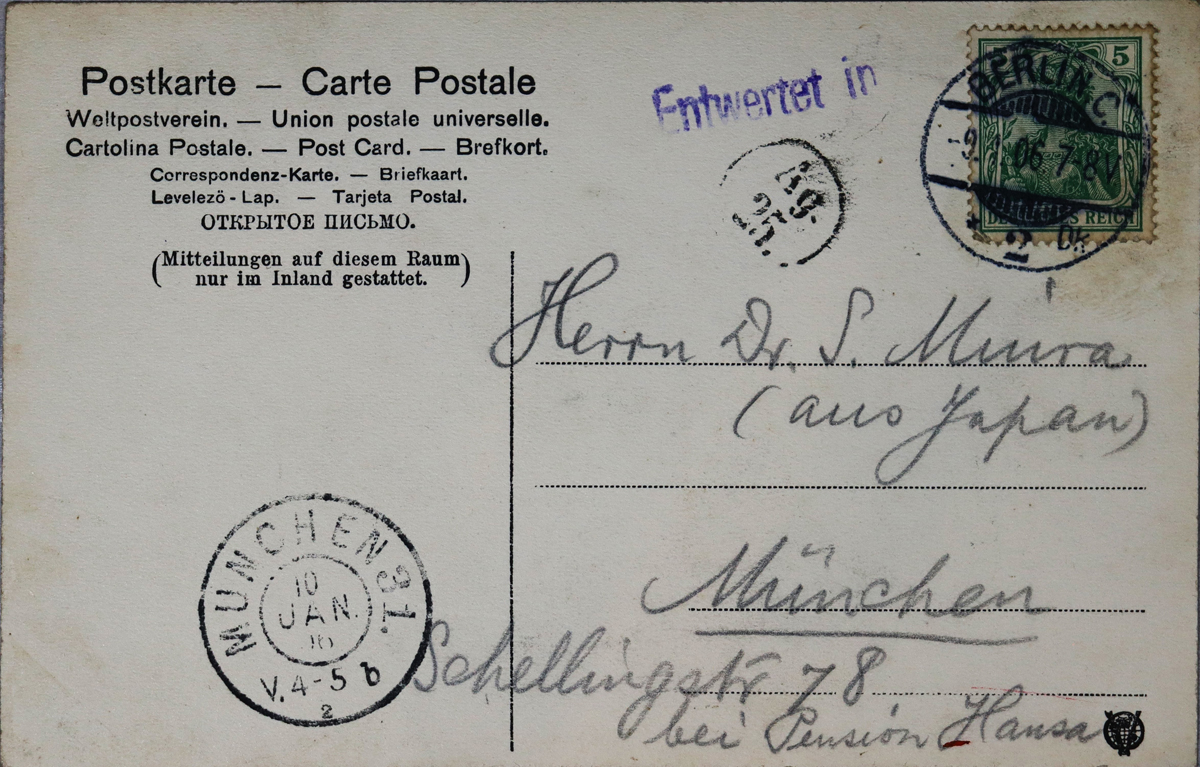 Postkarte – Carte Postale
Weltpostverein. — Union postale universelle.
Cartolina Postale. — Post Card. — Brefkort.
Correspondenz-Karte. — Briefkaart.
Levelezö-Lap. — Tarjeta Postal.
ОТКРЫТОЕ ПИСЬМО.
(Mitteilungen auf diesem Raum
nur im Inland gestattet.)
Entwertet in
25.
5
BERLIN.C
06.7-8V
REICH
2 DK
Herrn Dr. S. Miura
(aus Japan)
München
Schellingstr 78
bei Pension Hansa
MÜNCHEN 31.
10
JAN.
V.4-5 b
2